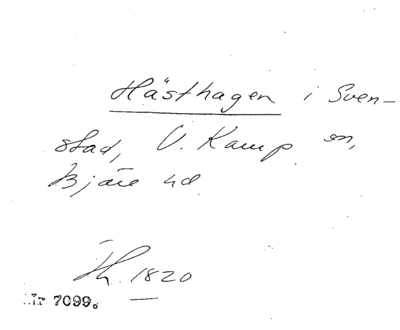 Hästhagen i Sven-
stad, V. Karup sn,
Bjäre hd
Th. 1820
Nr 7099.